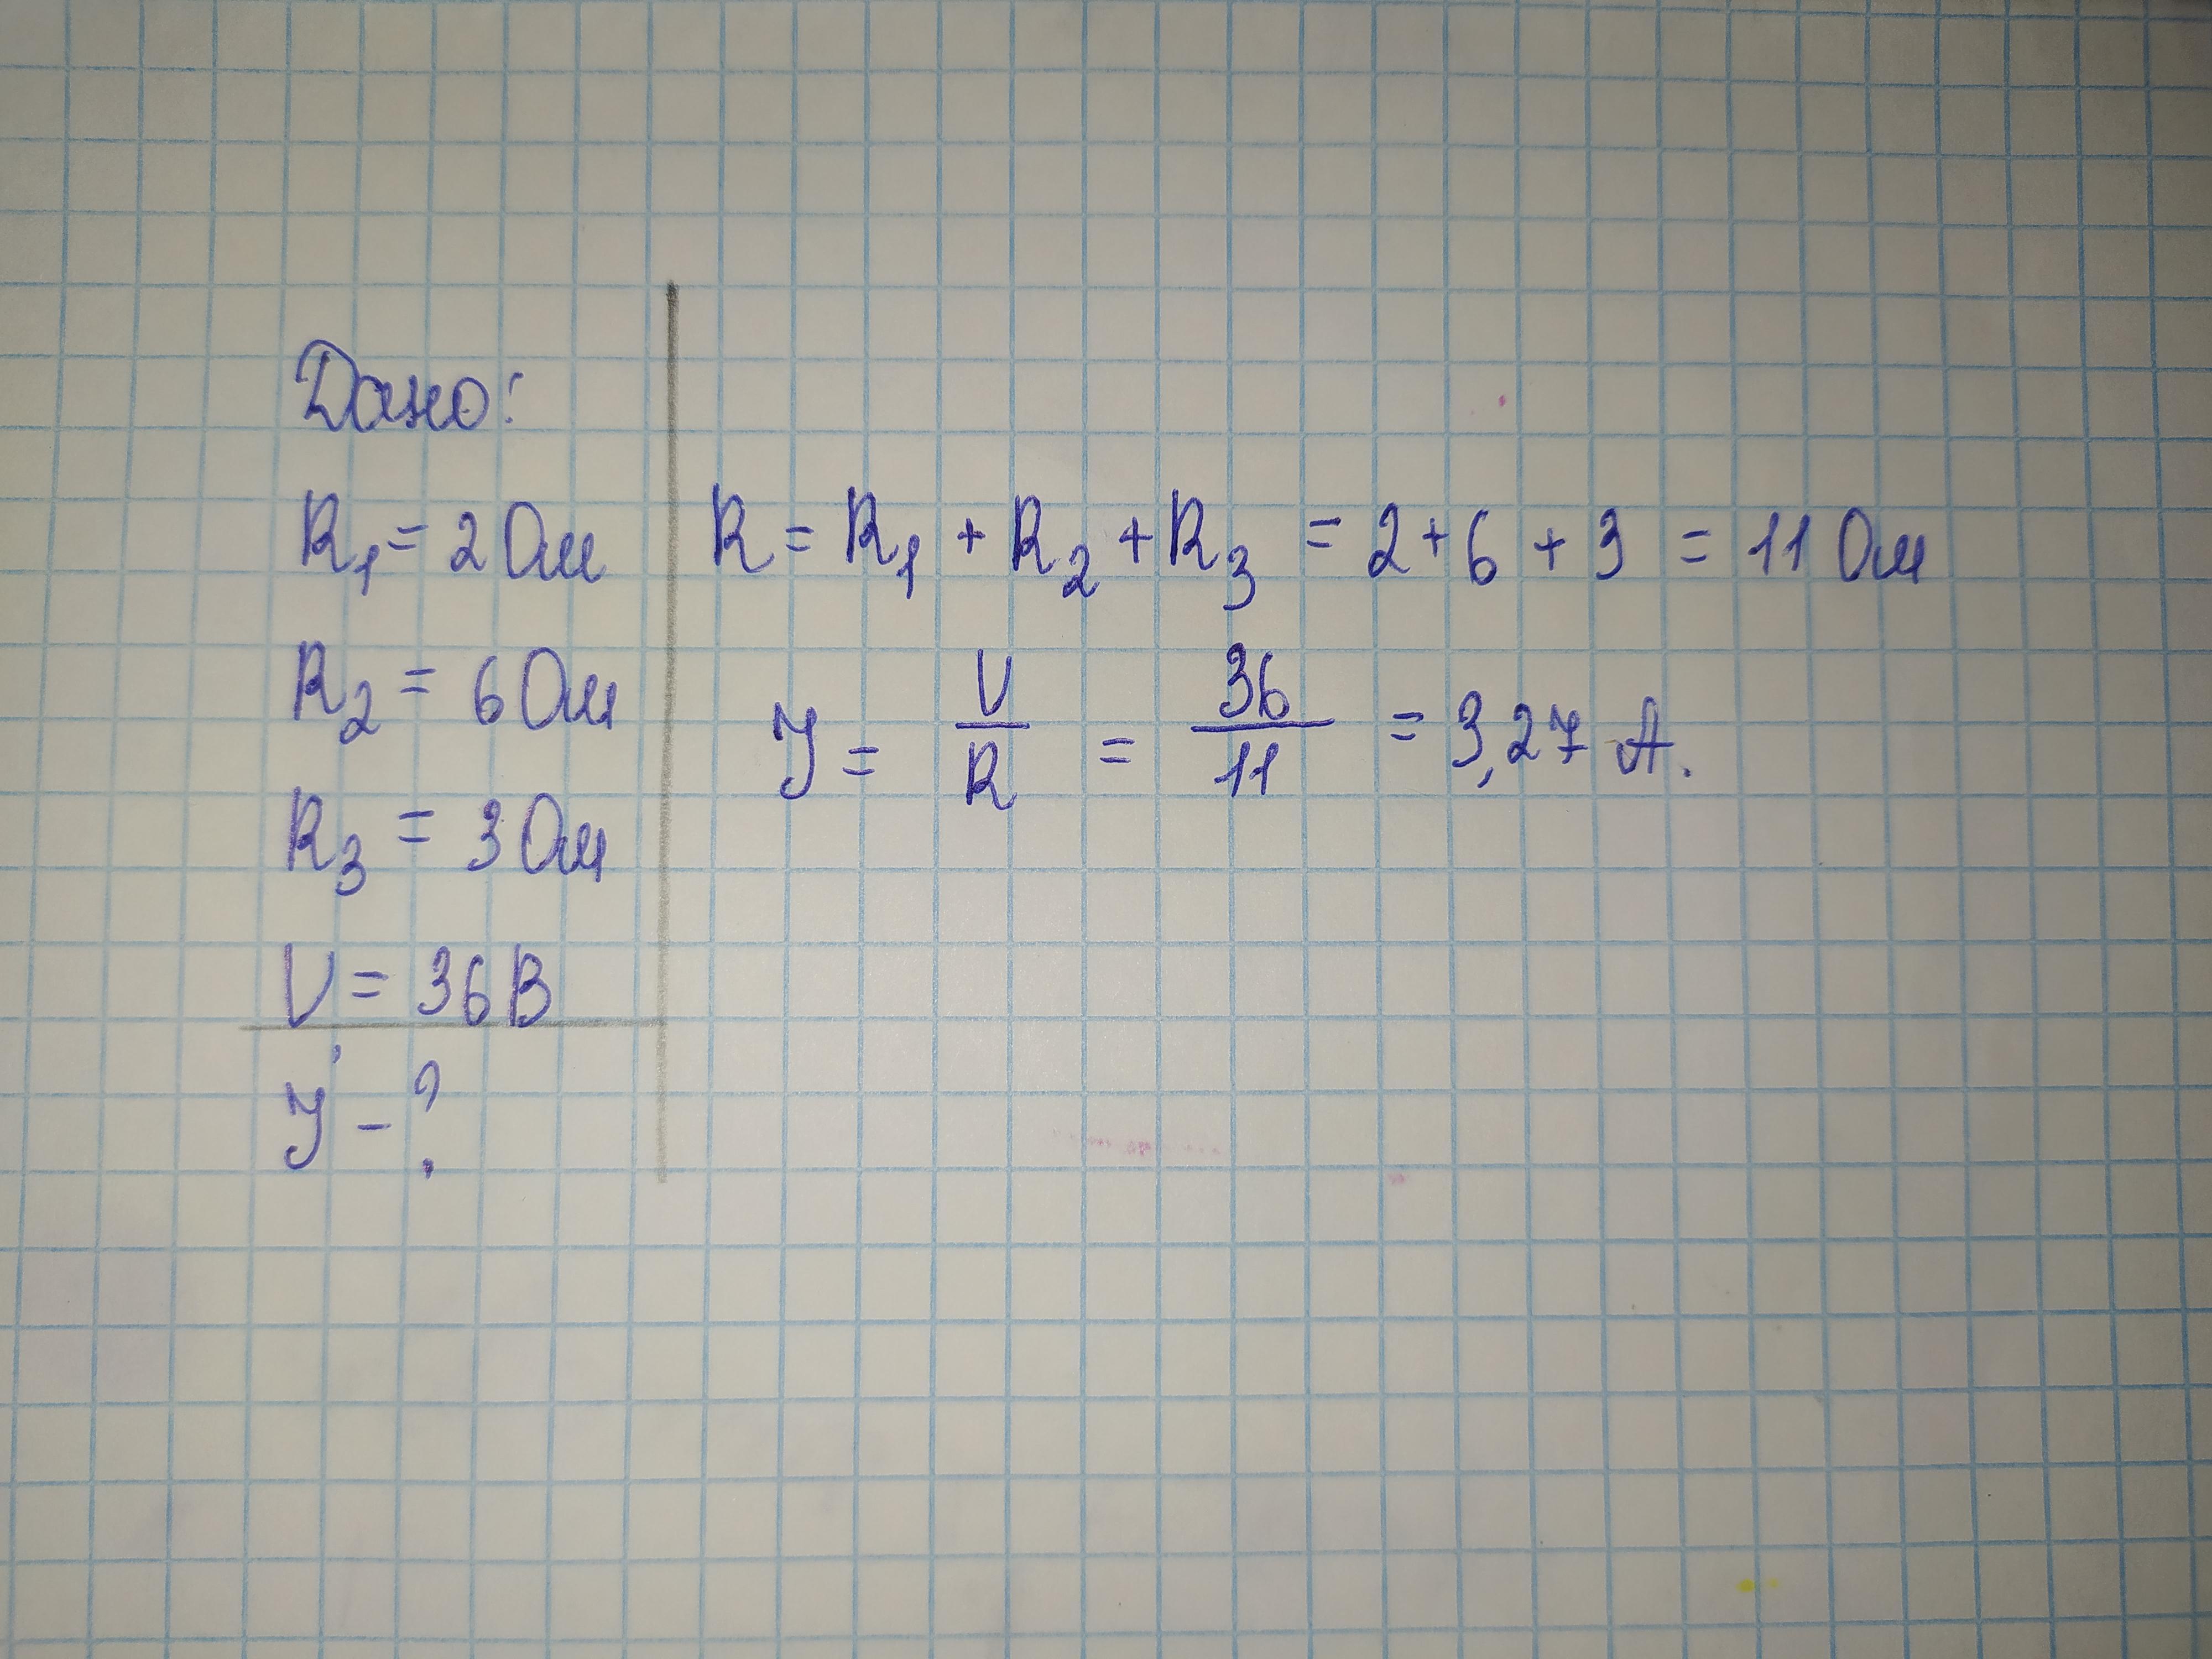 Дано:
R₁ = 2 Ом
R₂ = 6 Ом
R₃ = 3 Ом
U = 36 В
J - ?
R = R₁ + R₂ + R₃ = 2 + 6 + 3 = 11 Ом
J = U/R = 36/11 = 3,27 А.